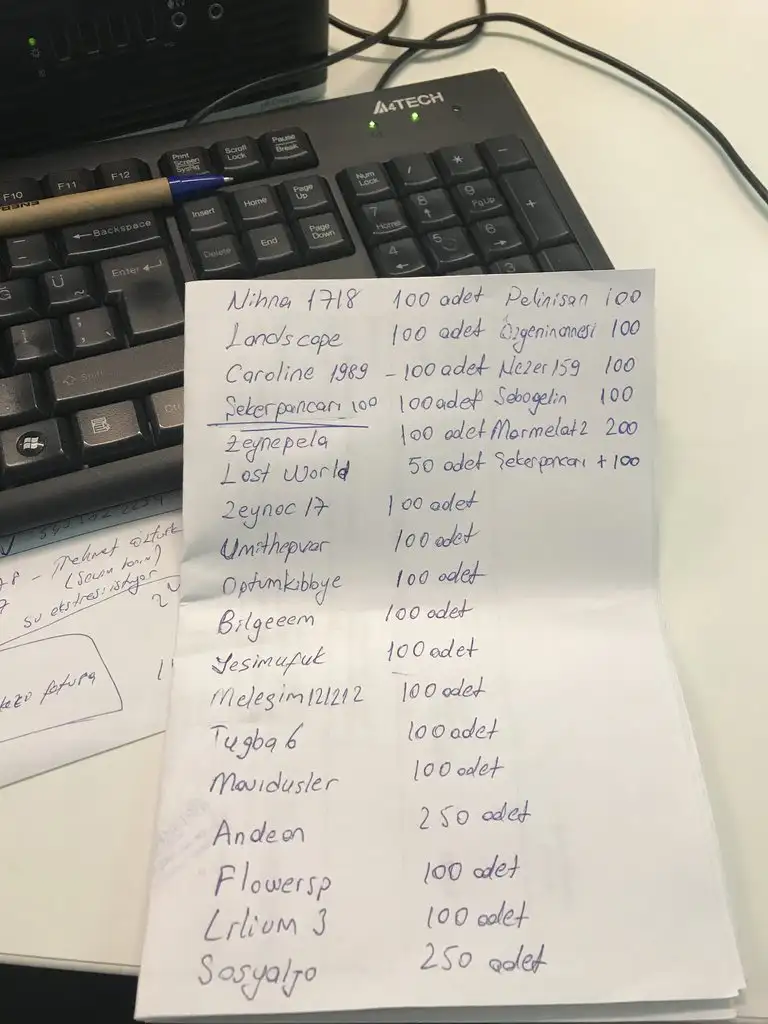 A4TECH
Print Screen SysRq
Scroll Lock
Pause Break
F10
F11
F12
Insert
Home
Page Up
Num Lock
/
*
-
Backspace
Delete
End
Page Down
7 Home
8
9 PgUp
+
Enter
4
5
6
3
Ğ
Ü
Shift
Nihna 1718 100 adet Pelinisan 100
Landscape 100 adet Özgeninannesi 100
Caroline 1989 - 100 adet Nezer159 100
Sekerpancarı 100 100 adet Sebogelin 100
Zeynepela 100 adet Marmelat2 200
Lost World 50 adet Sekerpancarı +100
Zeynoc 17 100 adet
Umithepvar 100 adet
Optumkibbye 100 adet
Bilgeeem 100 adet
Yesimufuk 100 adet
Melegim121212 100 adet
Tugba 6 100 adet
Mavidusler 100 adet
Andeon 250 adet
Flowersp 100 adet
Lilium 3 100 adet
Sosyaljo 250 adet
Mehmet
su ekstresi istiyor
fatura